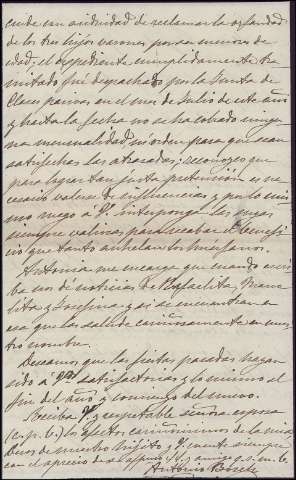 con asiduidad de reclamar la orfandad
de los tres hijos varones por ser menores de
edad; el expediente cumplidamente tra-
mitado fué despachado por la Junta de
Clases pasivas en el mes de Julio de este año
y hasta la fecha no se ha cobrado ningu-
na mensualidad ni orden para que sean
satisfechas las atrasadas; reconozco que
para lograr tan justa pretension es ne-
cesario valerse de influencias y por lo mis-
mo ruego a V. interponga las suyas
siempre valiosas para recabar el benefi-
cio que tanto anhelan los huérfanos.
Antonia me encarga que cuando escri-
ba nos dé noticias de Rafaelita, Manue-
lita y Josefina y si se encuentran en
esa que las salude cariñosamente en nues-
tro nombre.
Deseamos que las fiestas pasadas hayan
sido á Vds satisfactorias y lo mismo el
fin del año y comienzo del nuevo.
Reciba V. y respetable señora esposa
(c. p. b.) los afectos cariñosísimos de la mia
de nuestro hijito y V. cuente siempre
con el aprecio de su affmo. y amigo q. s. m. b.
Antonio